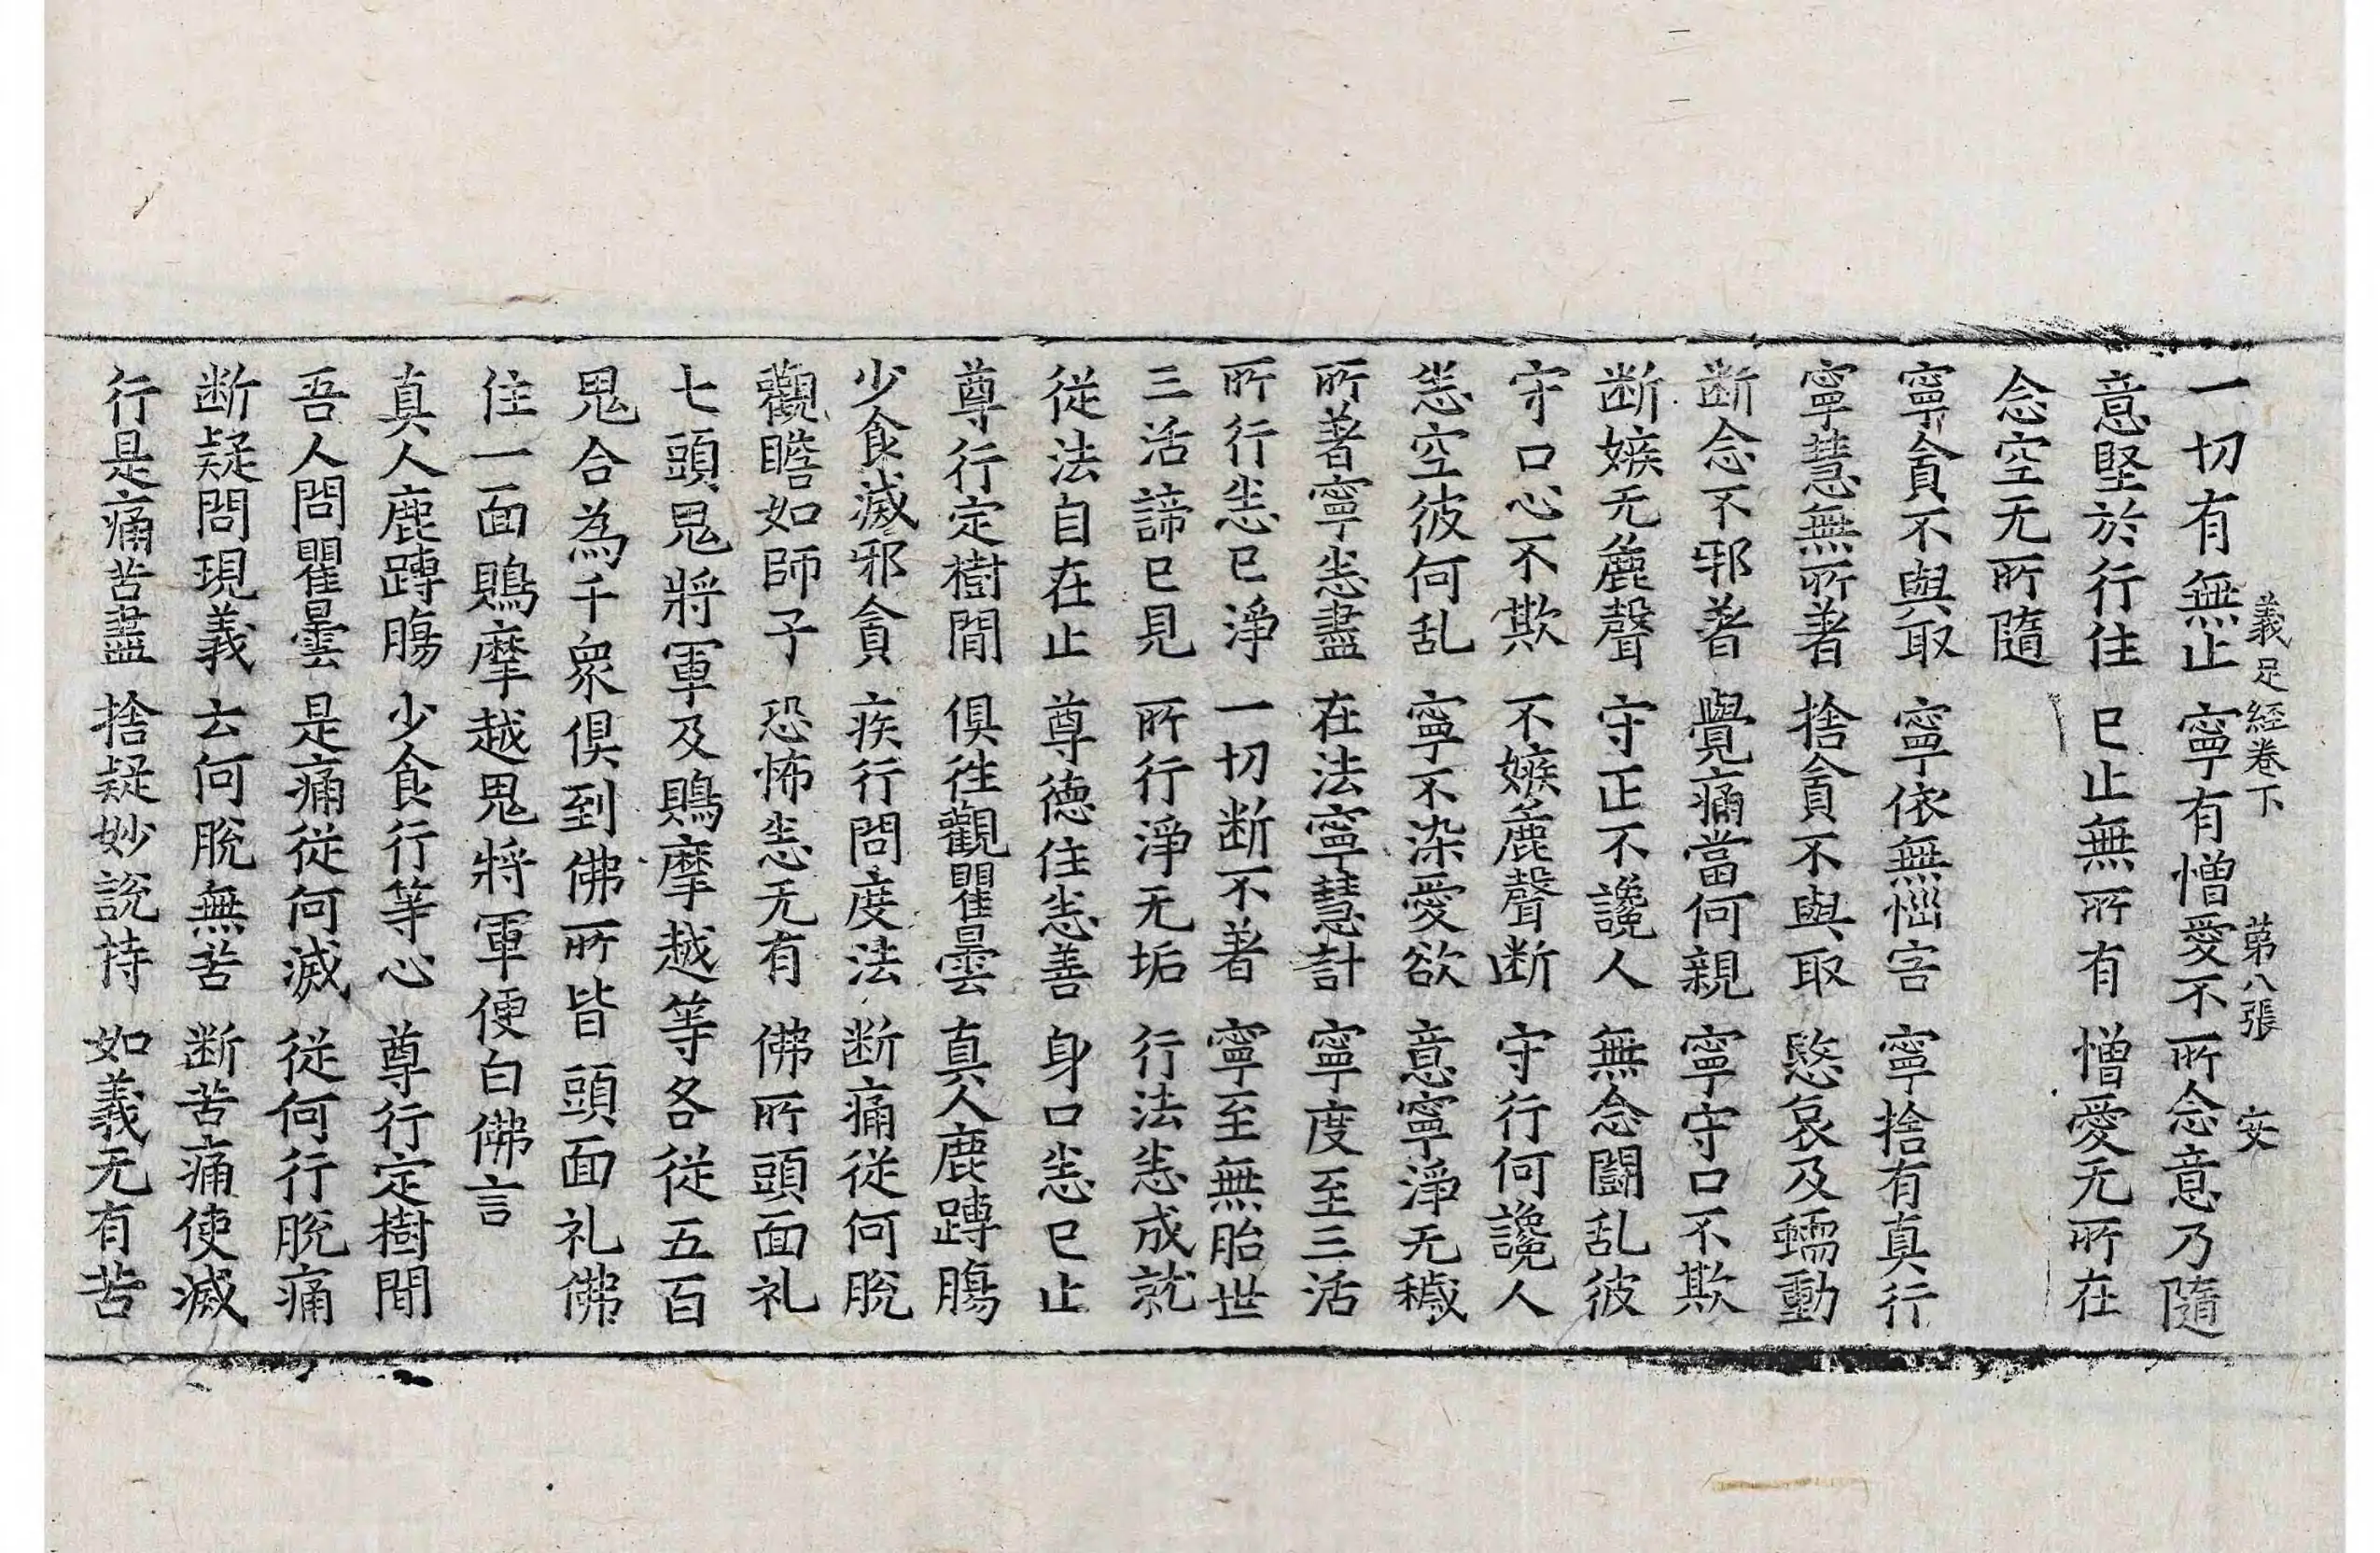 義足經卷下 第八張 安
一切有無止 寧有憎愛不 所念意乃隨
意堅於行住 已止無所有 憎愛无所在
念空无所隨
寧貪不與取 寧依無惱害 寧捨有真行
寧慧無所著 捨貪不與取 慜哀及蠕動
断念不邪著 覺痛當何親 寧守口不欺
断嫉无麁聲 守正不讒人 無念鬪乱彼
守口心不欺 不嫉麁聲断 守行何讒人
恙空彼何乱 寧不染愛欲 意寧淨无穢
所著寧恙盡 在法寧慧計 寧度至三活
所行恙已淨 一切断不著 寧至無胎世
三活諦已見 所行淨无垢 行法恙成就
從法自在止 尊德住恙善 身口恙已止
尊行定樹間 俱徃觀瞿曇 真人鹿蹲腸
少食滅邪貪 疾行問度法 断痛從何脫
觀瞻如師子 恐怖恙无有 佛所頭面礼
七頭鬼將軍及鵙摩越等各從五百
鬼合為千衆俱到佛所皆頭面礼佛
住一面鵙摩越鬼將軍便白佛言
真人鹿蹲腸 少食行等心 尊行定樹間
吾人問瞿曇 是痛從何滅 從何行脫痛
断疑問現義 云何脫無苦 断苦痛使滅
行是痛苦盡 捨疑妙說持 如義无有苦